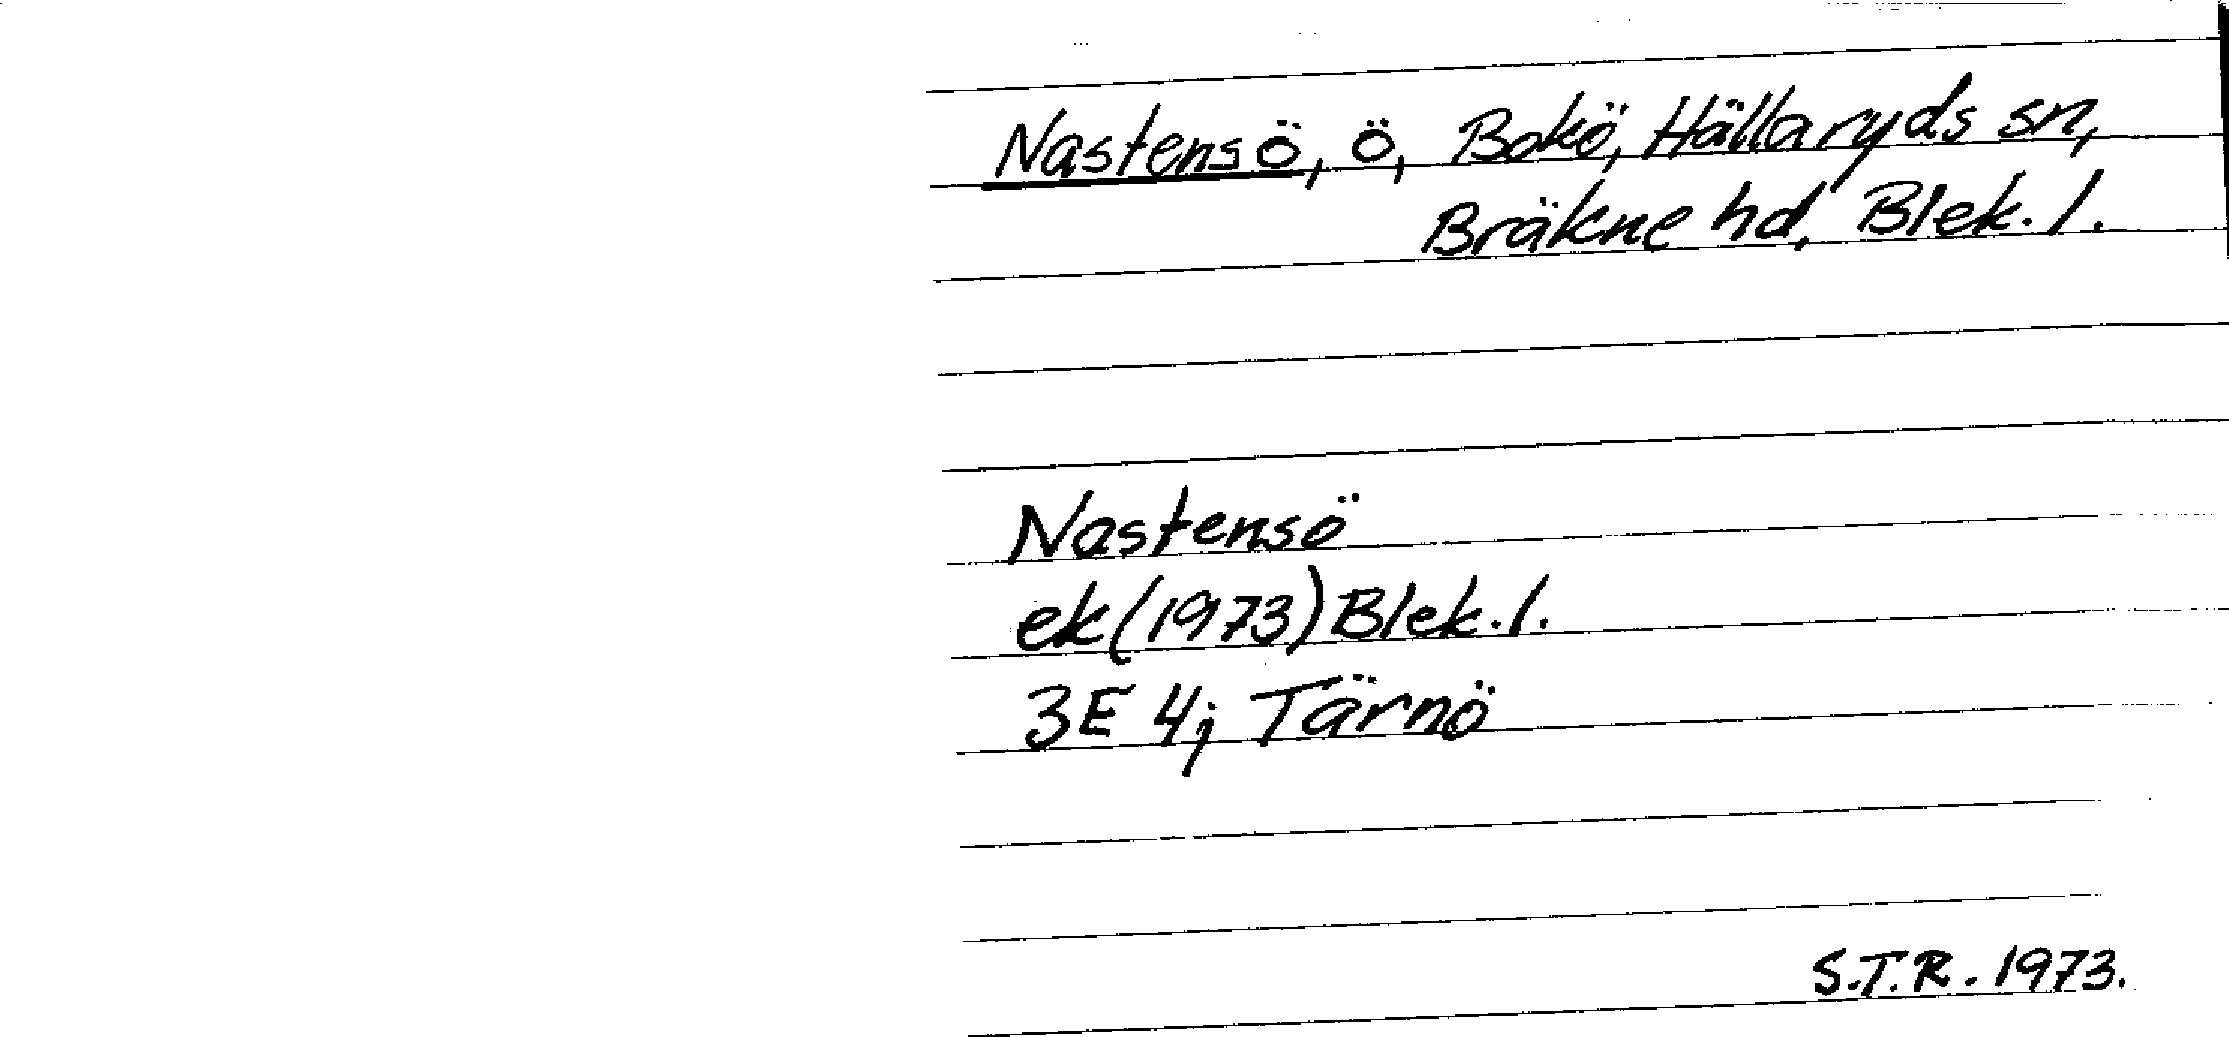 Nastensö, ö, Bokö, Hällaryds sn,
Bräkne hd, Blek. l.
Nastensö
ek (1973) Blek. l.
3E 4j Tärnö
S.T.R. 1973.